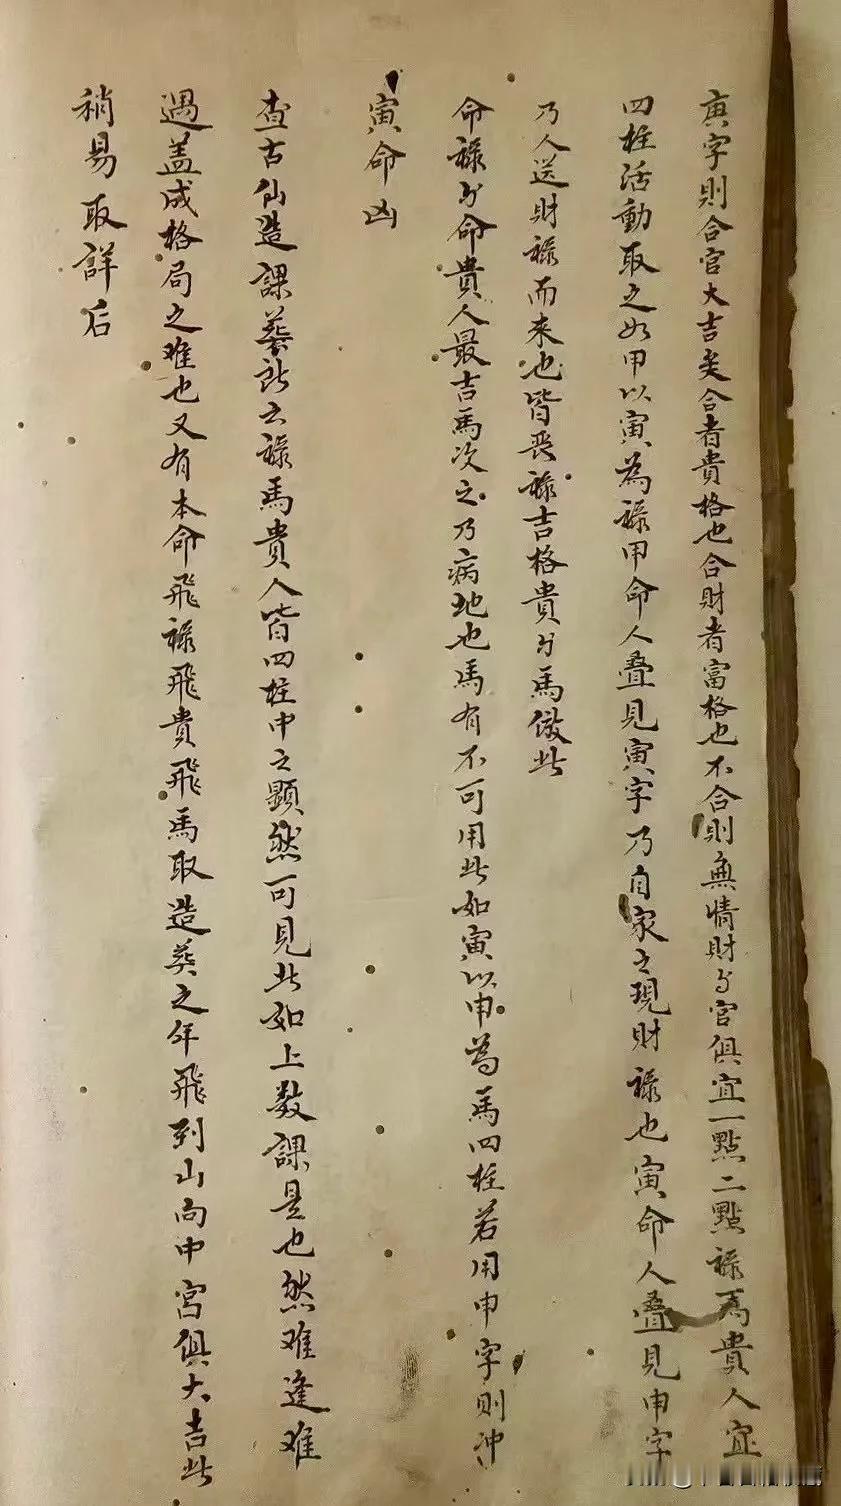 庚字則合官大吉矣合者貴格也合財者富格也不合則無情財与官俱宜一點二點祿馬貴人宜
四柱活動取之如甲以寅為祿甲命人叠見寅字乃自家之現財祿也寅命人叠見申字
乃人送財祿而来也皆丧祿吉格貴与馬倣此
命祿与命貴人最吉馬次之乃病地也馬有不可用此如寅以申為馬四柱若用申字則冲
寅命凶
查古仙造課葬訣云祿馬貴人皆四柱中之顯然可見此如上数課是也然难逢难
遇盖成格局之难也又有本命飛祿飛貴飛馬取造葬之年飛到山向中宮俱大吉此
稍易取詳后